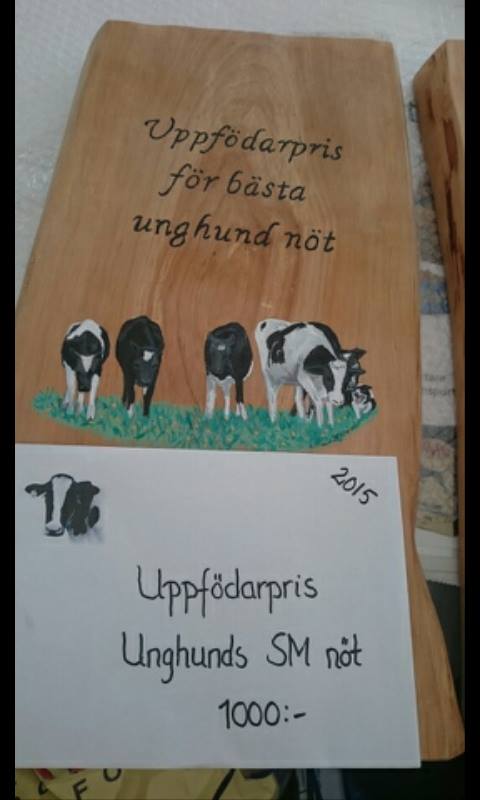 Uppfödarpris
för bästa
unghund nöt
2015
Uppfödarpris
Unghunds SM nöt
1000:-